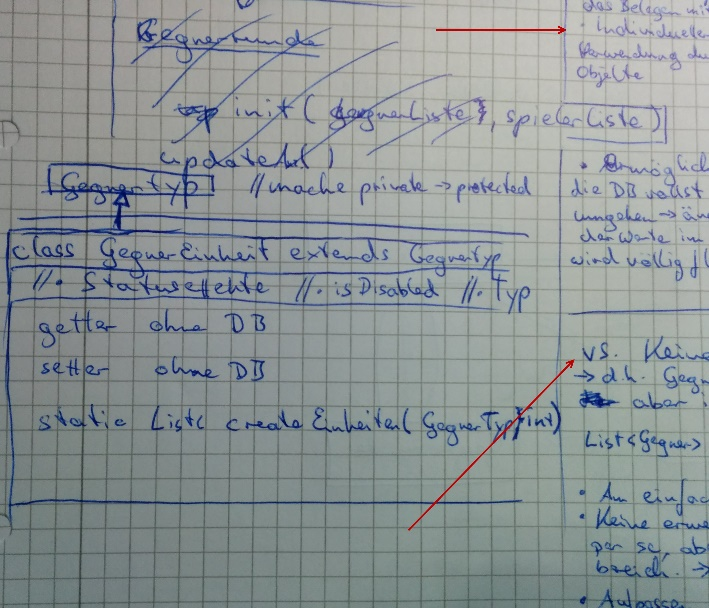 Gegnerrunde
init( gegnerListe, spielerListe )
update
GegnerTyp //mache private → protected
class GegnerEinheit extends Gegnertyp
//· Statuseffekte //· isDisabled //· Typ
getter ohne DB
setter ohne DB
static List< createEinheiten( GegnerTyp, int)
das Belegen mit
· Individuelle
Verwendung du
Objekte
• Ermöglich
die DB vollst
umgehen → än
der Werte im
wird völlig fl
vs. Keine
→ d.h. Gegn
aber i
List<Gegner>
• Am einfac
• Keine erwe
per se, ab
bereich. →
• Aufpasse